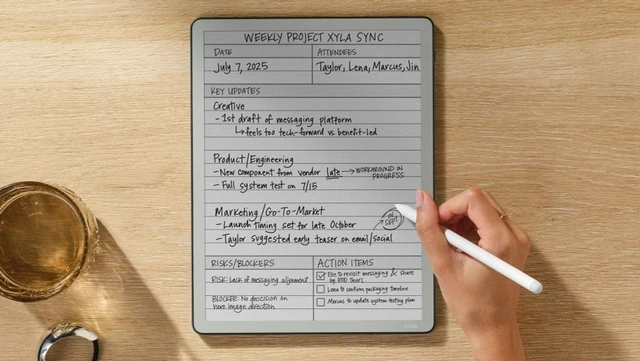 WEEKLY PROJECT XYLA SYNC
DATE
ATTENDEES
July 7, 2025
Taylor, Lena, Marcus, Jin
KEY UPDATES
Creative
- 1st draft of messaging platform
↳ feels too tech-forward vs benefit-led
Product/Engineering
- New component from vendor late → WORKAROUND IN
PROGRESS
- Full system test on 7/15
Marketing/Go-To-Market
- Launch timing set for late October
IN
SEPT
- Taylor suggested early teaser on email/social
RISKS/BLOCKERS
RISK: Lack of messaging alignment
BLOCKER: No decision on
hero image direction
ACTION ITEMS
Elle to revisit messaging & share
by EOD Thurs
Lena to confirm packaging timeline
Marcus to update system testing plan